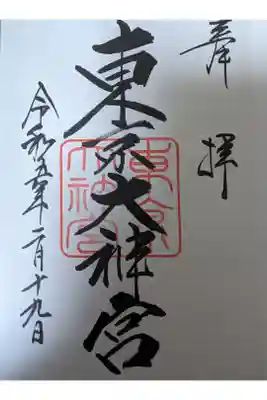 奉拝
東京大神宮
東京大神宮
令和五年二月十九日